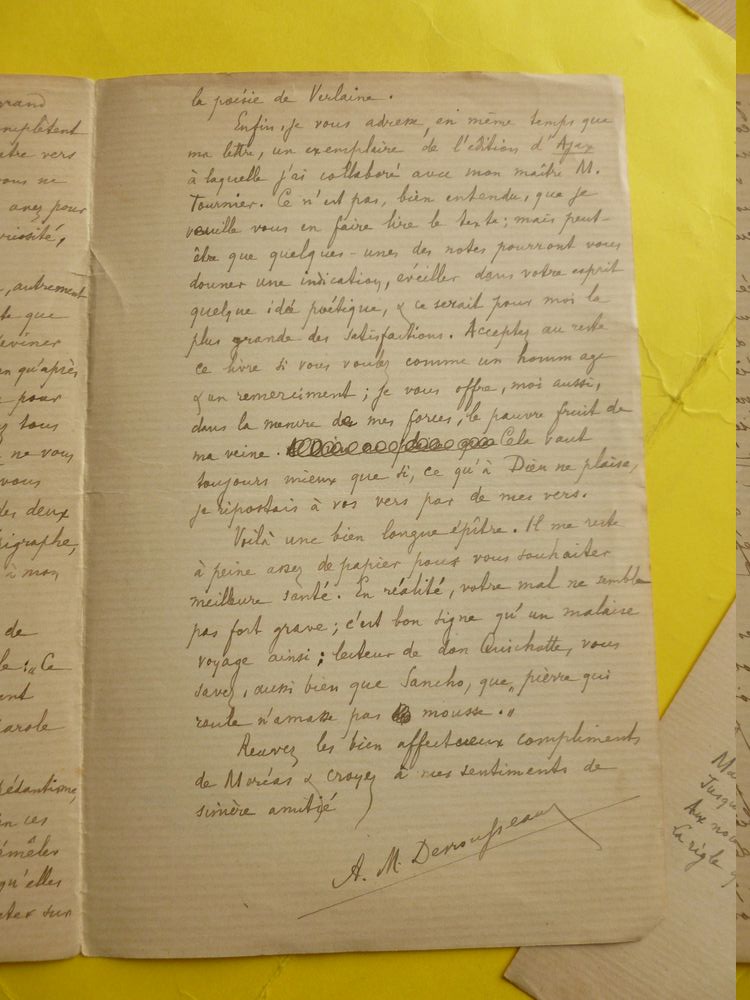 rand
mplètent
tre vers
ous ne
avez pour
riosité,
, autrement
te que
eviner
n qu'après
pour
tous
ne vous
vous
des deux
igraphe,
à mon
de
le : "Ce
ent
arole
édantisme,
n ces
émêler
qu'elles
eter sur
la poésie de Verlaine.
Enfin, je vous adresse, en même temps que
ma lettre, un exemplaire de l'édition d'Ajax
à laquelle j'ai collaboré avec mon maître M.
Tournier. Ce n'est pas, bien entendu, que je
veuille vous en faire lire le texte ; mais peut-
être que quelques-unes des notes pourront vous
donner une indication, éveiller dans votre esprit
quelque idée poétique, & ce serait pour moi la
plus grande des satisfactions. Acceptez au reste
ce livre si vous voulez comme un hommage
& un remerciment ; je vous offre, moi aussi,
dans la mesure de mes forces, le pauvre fruit de
ma veine. Cela vaut
toujours mieux que si, ce qu'à Dieu ne plaise,
je ripostais à vos vers par de mes vers.
Voilà une bien longue épître. Il me reste
à peine assez de papier pour vous souhaiter
meilleure santé. En réalité, votre mal ne semble
pas fort grave ; c'est bon signe qu'un malaise
voyage ainsi ; lecteur de don Quichotte, vous
savez, aussi bien que Sancho, que "pierre qui
roule n'amasse pas mousse."
Recevez les bien affectueux compliments
de Moréas & croyez à mes sentiments de
sincère amitié
A. M. Desrousseaux
Ma
Jusqu
Aux nou
La règle q